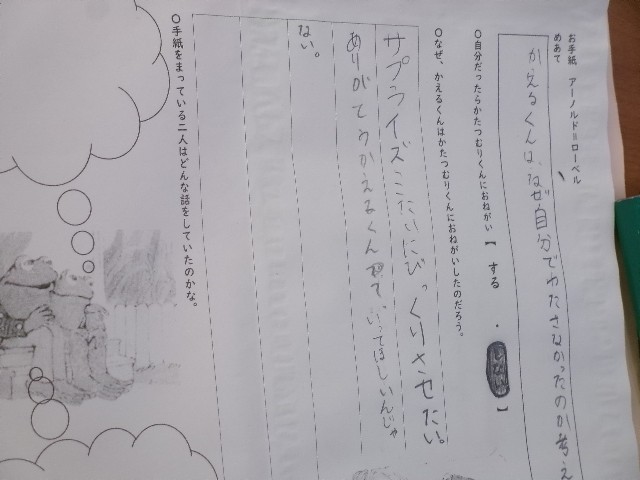 お手紙 アーノルド=ローベル
めあて
かえるくんは、なぜ自分でわたさなかったのか考え
○自分だったらかたつむりくんにおねがい【 する ・ 】
○なぜ、かえるくんはかたつむりくんにおねがいしたのだろう。
サプライズみたいにびっくりさせたい。
ありがとうかえるくんて、いってほしいんじゃ
ない。
○手紙をまっている二人はどんな話をしていたのかな。